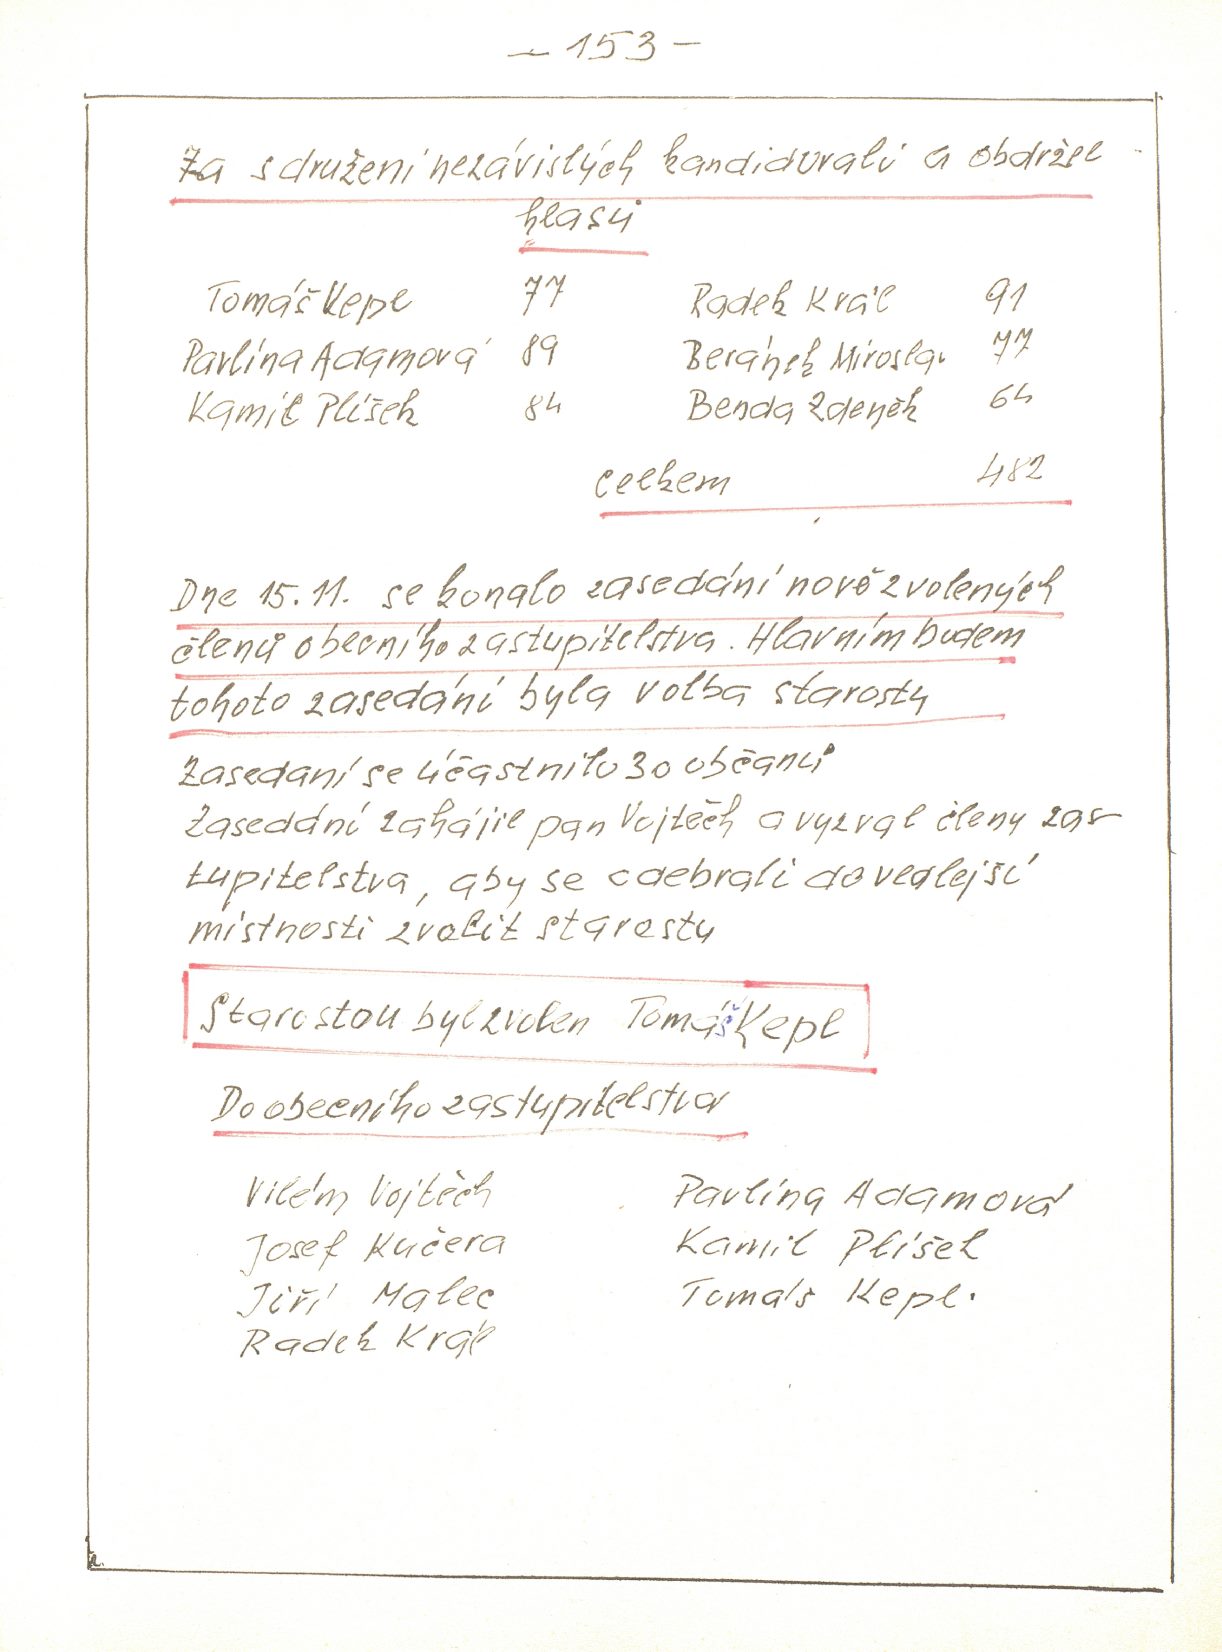 - 153 -
Za sdružení nezávislých kandidovali a obdržel
hlasů
Tomáš Kepl 77 Radek Král 91
Pavlína Adamová 89 Beránek Miroslav 77
Kamil Plíšek 84 Benda Zdeněk 64
celkem 482
Dne 15.11. se konalo zasedání nově zvolených
členů obecního zastupitelstva. Hlavním budem
tohoto zasedání byla volba starosty
Zasedaní se účastnilo 30 občanů
Zasedání zahájil pan Vojtěch a vyzval členy zas-
tupitelstva, aby se odebrali do vedlejší
místnosti zvolit starostu
Starostou byl zvolen Tomáš Kepl
Do obecního zastupitelstva
Vilém Vojtěch Pavlína Adamová
Josef Kučera Kamil Plíšek
Jiří Malec Tomáš Kepl.
Radek Král